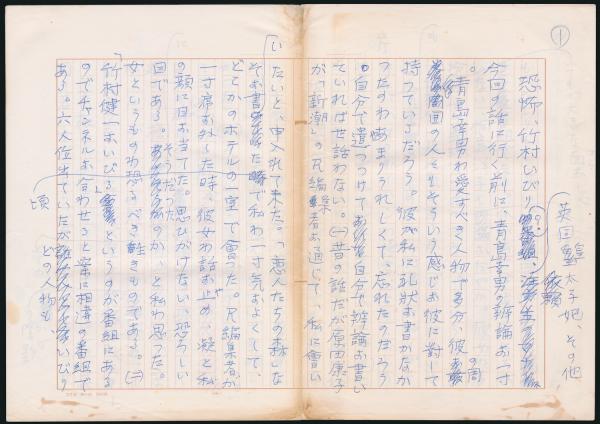 ①
英国皇太子妃、その他
依頼
恐怖、竹村いびり
今回の話に行く前に、青島幸男の辯論お一寸
。青島幸男わ愛すべき人物で多分、彼お
の周囲の人々もそういう感じお彼に対して
持っているだろう。彼が私に礼状お書かなか
ったのわあまりうれしくて、忘れたのだろう
。自分で遣つつけて自分で辯論お書い
ていれば世話わない。㈠昔の話だが原田康子
が「新潮」のR編集者お通じて、私に會い
たいと、申入れて来た。「恋人たちの森」な
そお書た時で私わ一寸気およくして、
どこかのホテルの一室で會った。R編集者が
一寸席お外した時、彼女わ話お止め、凝と私
の顔に目お当てた。思ひがけない、恐ろしい
目である。そうだったのか、と私わ思った。
女というものわ恐るべき性きものである。㈡
「竹村健一おいびる」というのが番組にある
のでチャンネルお合わせると案に相違の番組で
ある。六人位出ていたがいびり
どの人物も、
頃